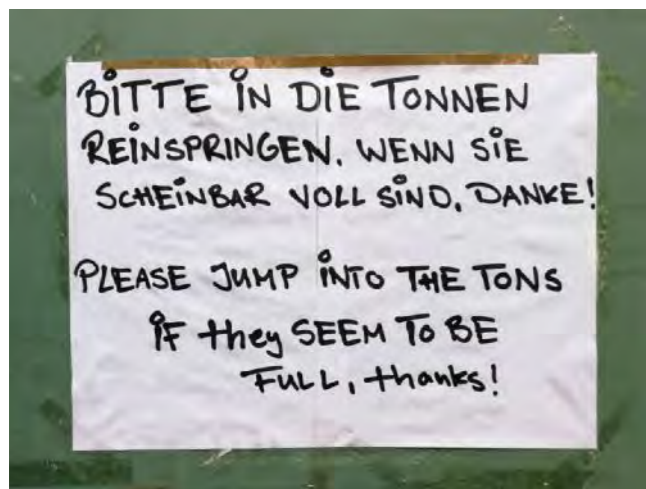 BITTE IN DIE TONNEN
REINSPRINGEN, WENN SIE
SCHEINBAR VOLL SIND, DANKE!
PLEASE JUMP INTO THE TONS
IF they SEEM TO BE
FULL, thanks!